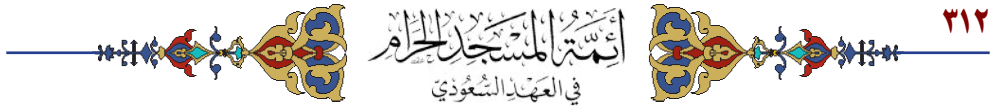 ٣١٢
أئمة المسجد الحرام
في العهد السعودي